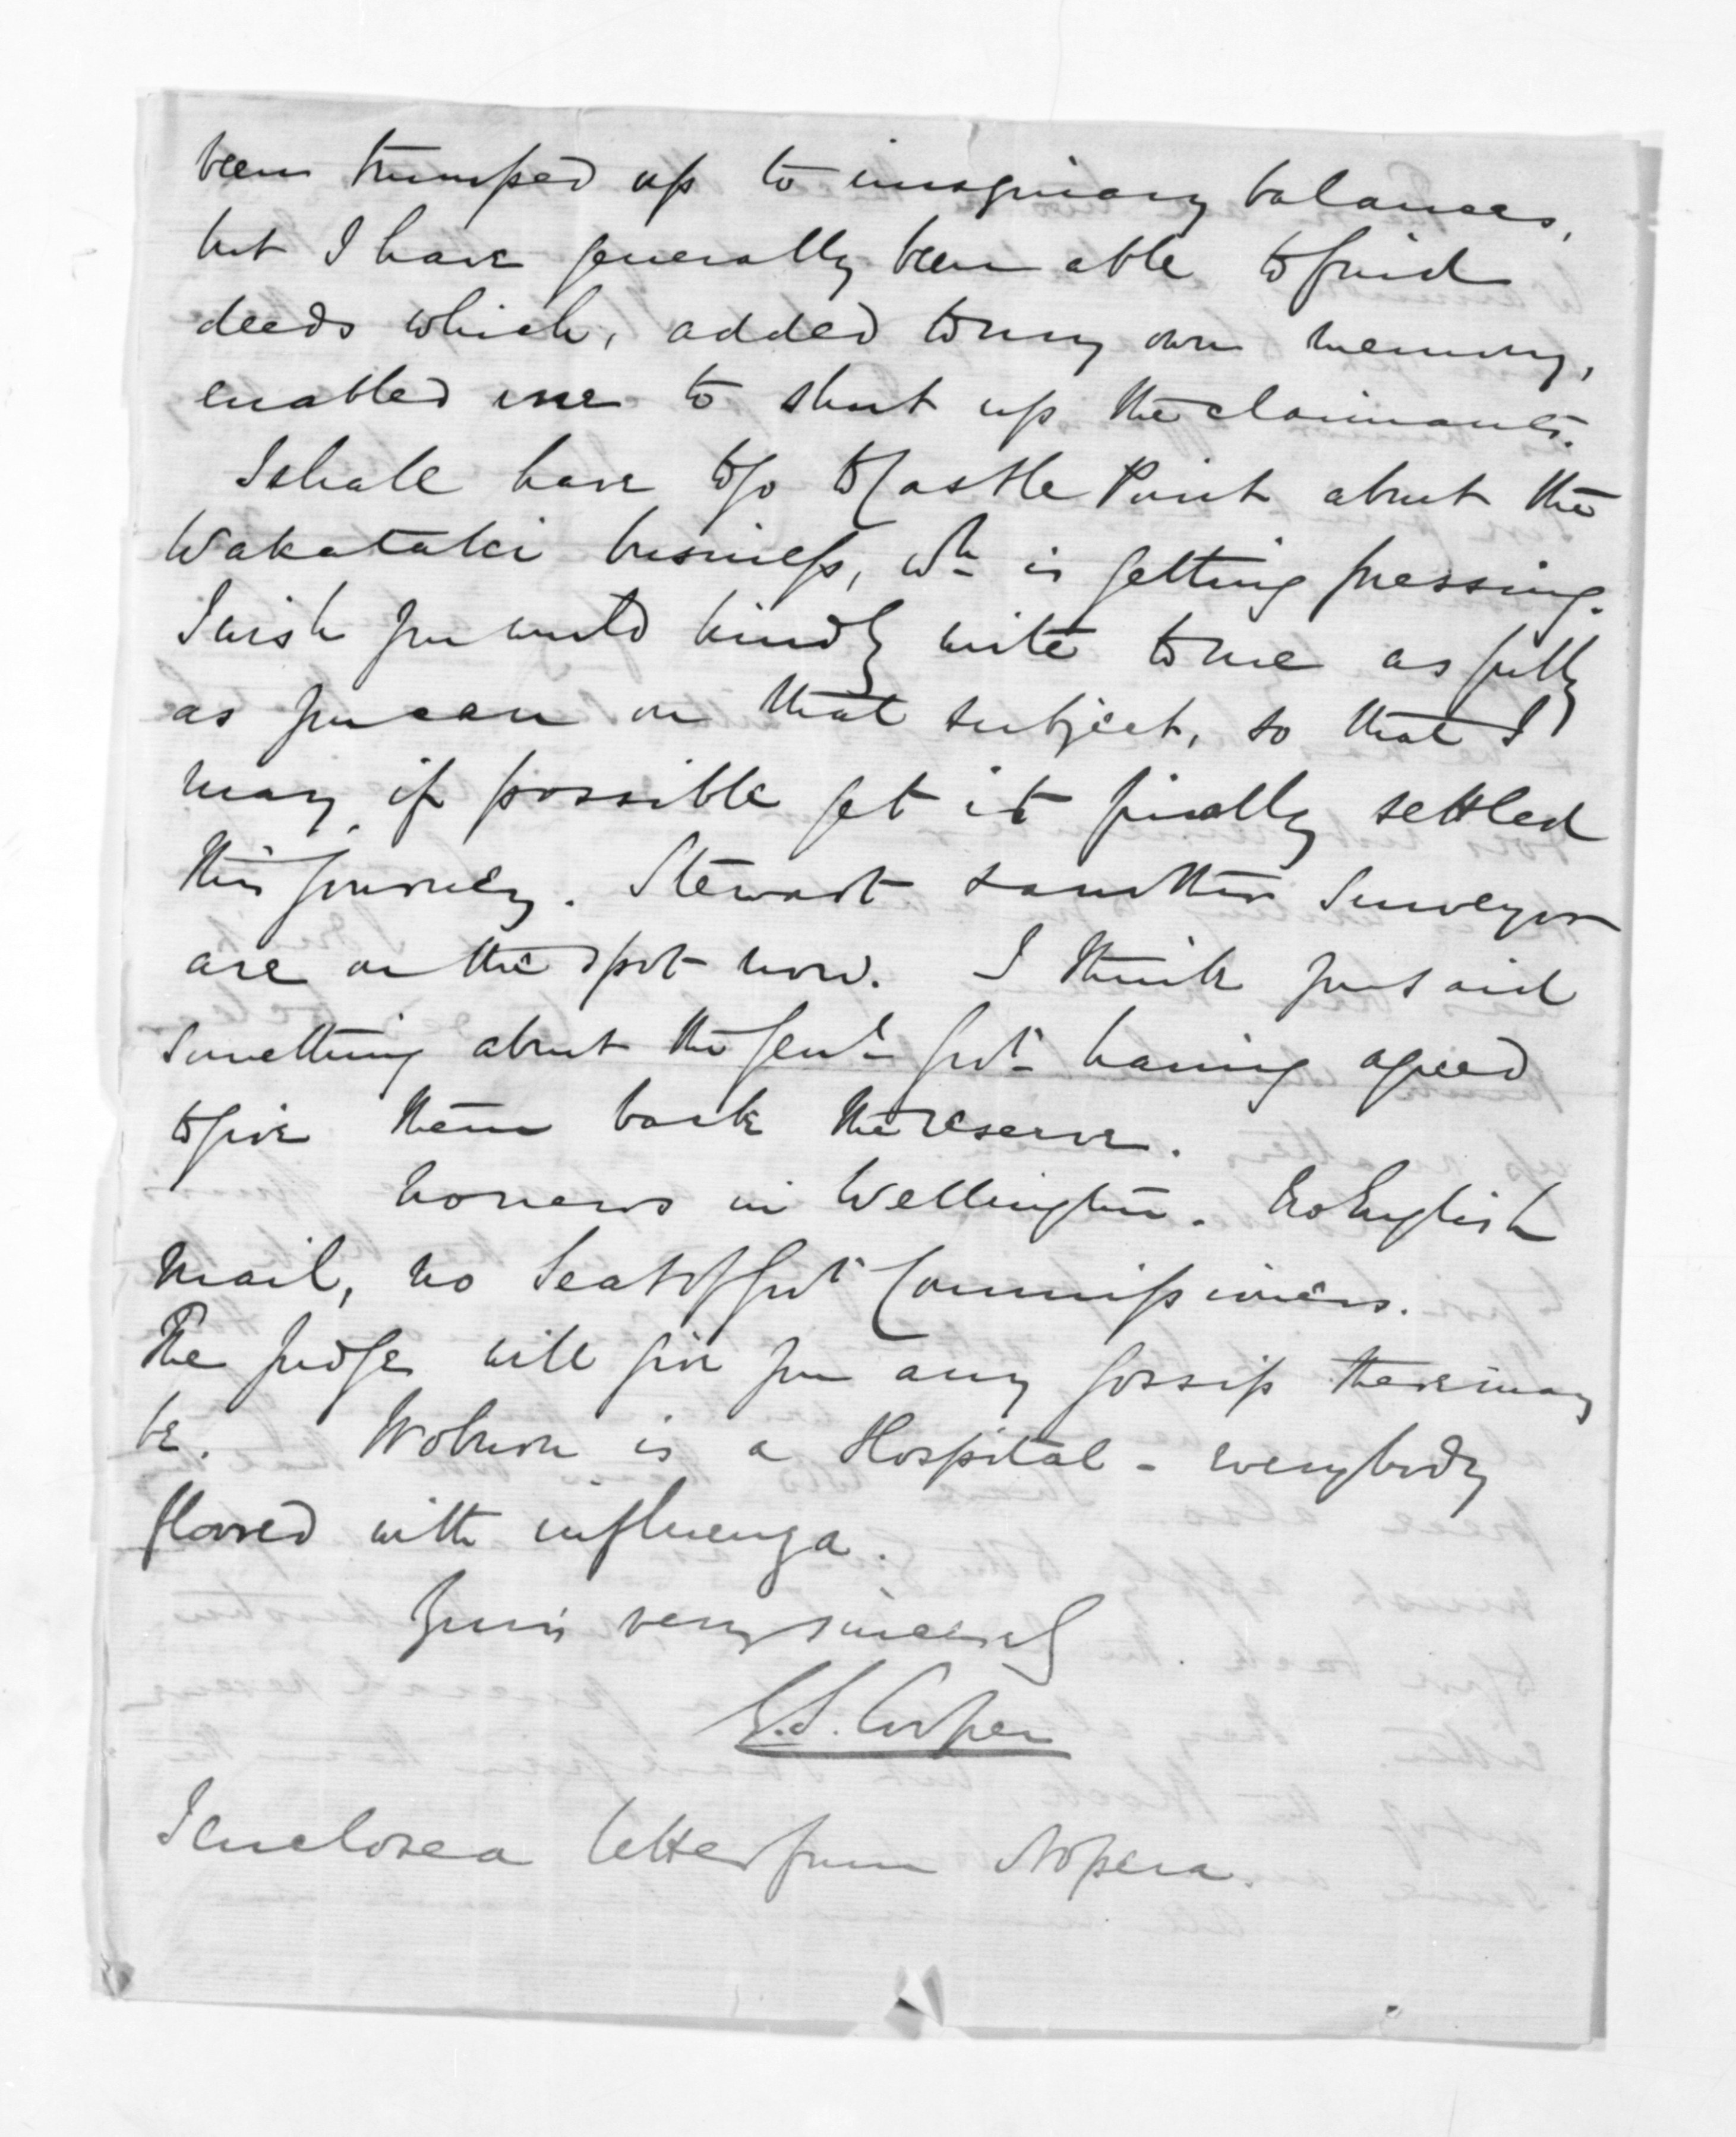 been trumped up to imaginary balances,
but I have generally been able to find
deeds which, added to my own memory,
enabled me to shut up the claimants.
I shall have to go to Castle Point about the
Wakataki business, wh. is getting pressing.
I wish you would kindly write to me as fully
as you can on that subject, so that I
may, if possible get it finally settled
this journey. Stewart & another Surveyor
are on the spot now. I think you said
something about the Genl. Govt. having agreed
to give them back the reserve.
No news in Wellington. No English
Mail, no Seat of Govt Commissioners.
The Judge will give you any gossip there may
be. Woburn is a Hospital - everybody
floored with influenza.
Yours very sincerely
G.S. Cooper
I enclose a letter from Nopera.